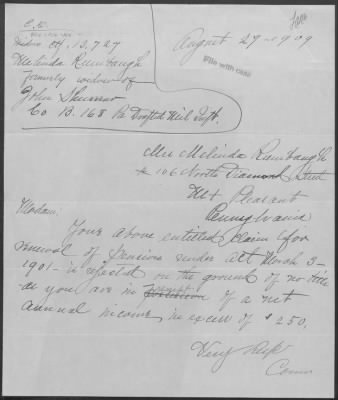 August 29-1909
File with case
Melinda Rumbaugh
formerly widow of
John
Co B. 168 Pa Drafted Mil Inft.
Mrs Melinda Rumbaugh
# 106 North Diamond Street
Mt Pleasant
Pennsylvania
Madam:
Your above entitled claim for
renewal of pension under act March 3-
1901- is rejected on the ground of no title
as you are in receipt of a net
annual income in excess of $250.
Very Resp
Comr